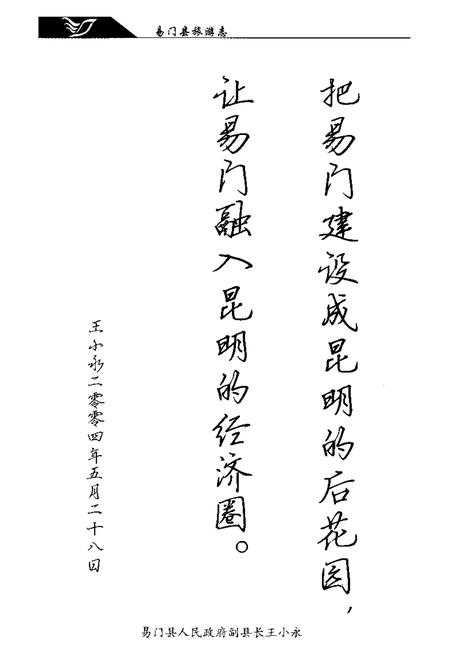 易门县旅游志
把易门建设成昆明的后花园，
让易门融入昆明的经济圈。
王小永二零零四年五月二十八日
易门县人民政府副县长王小永